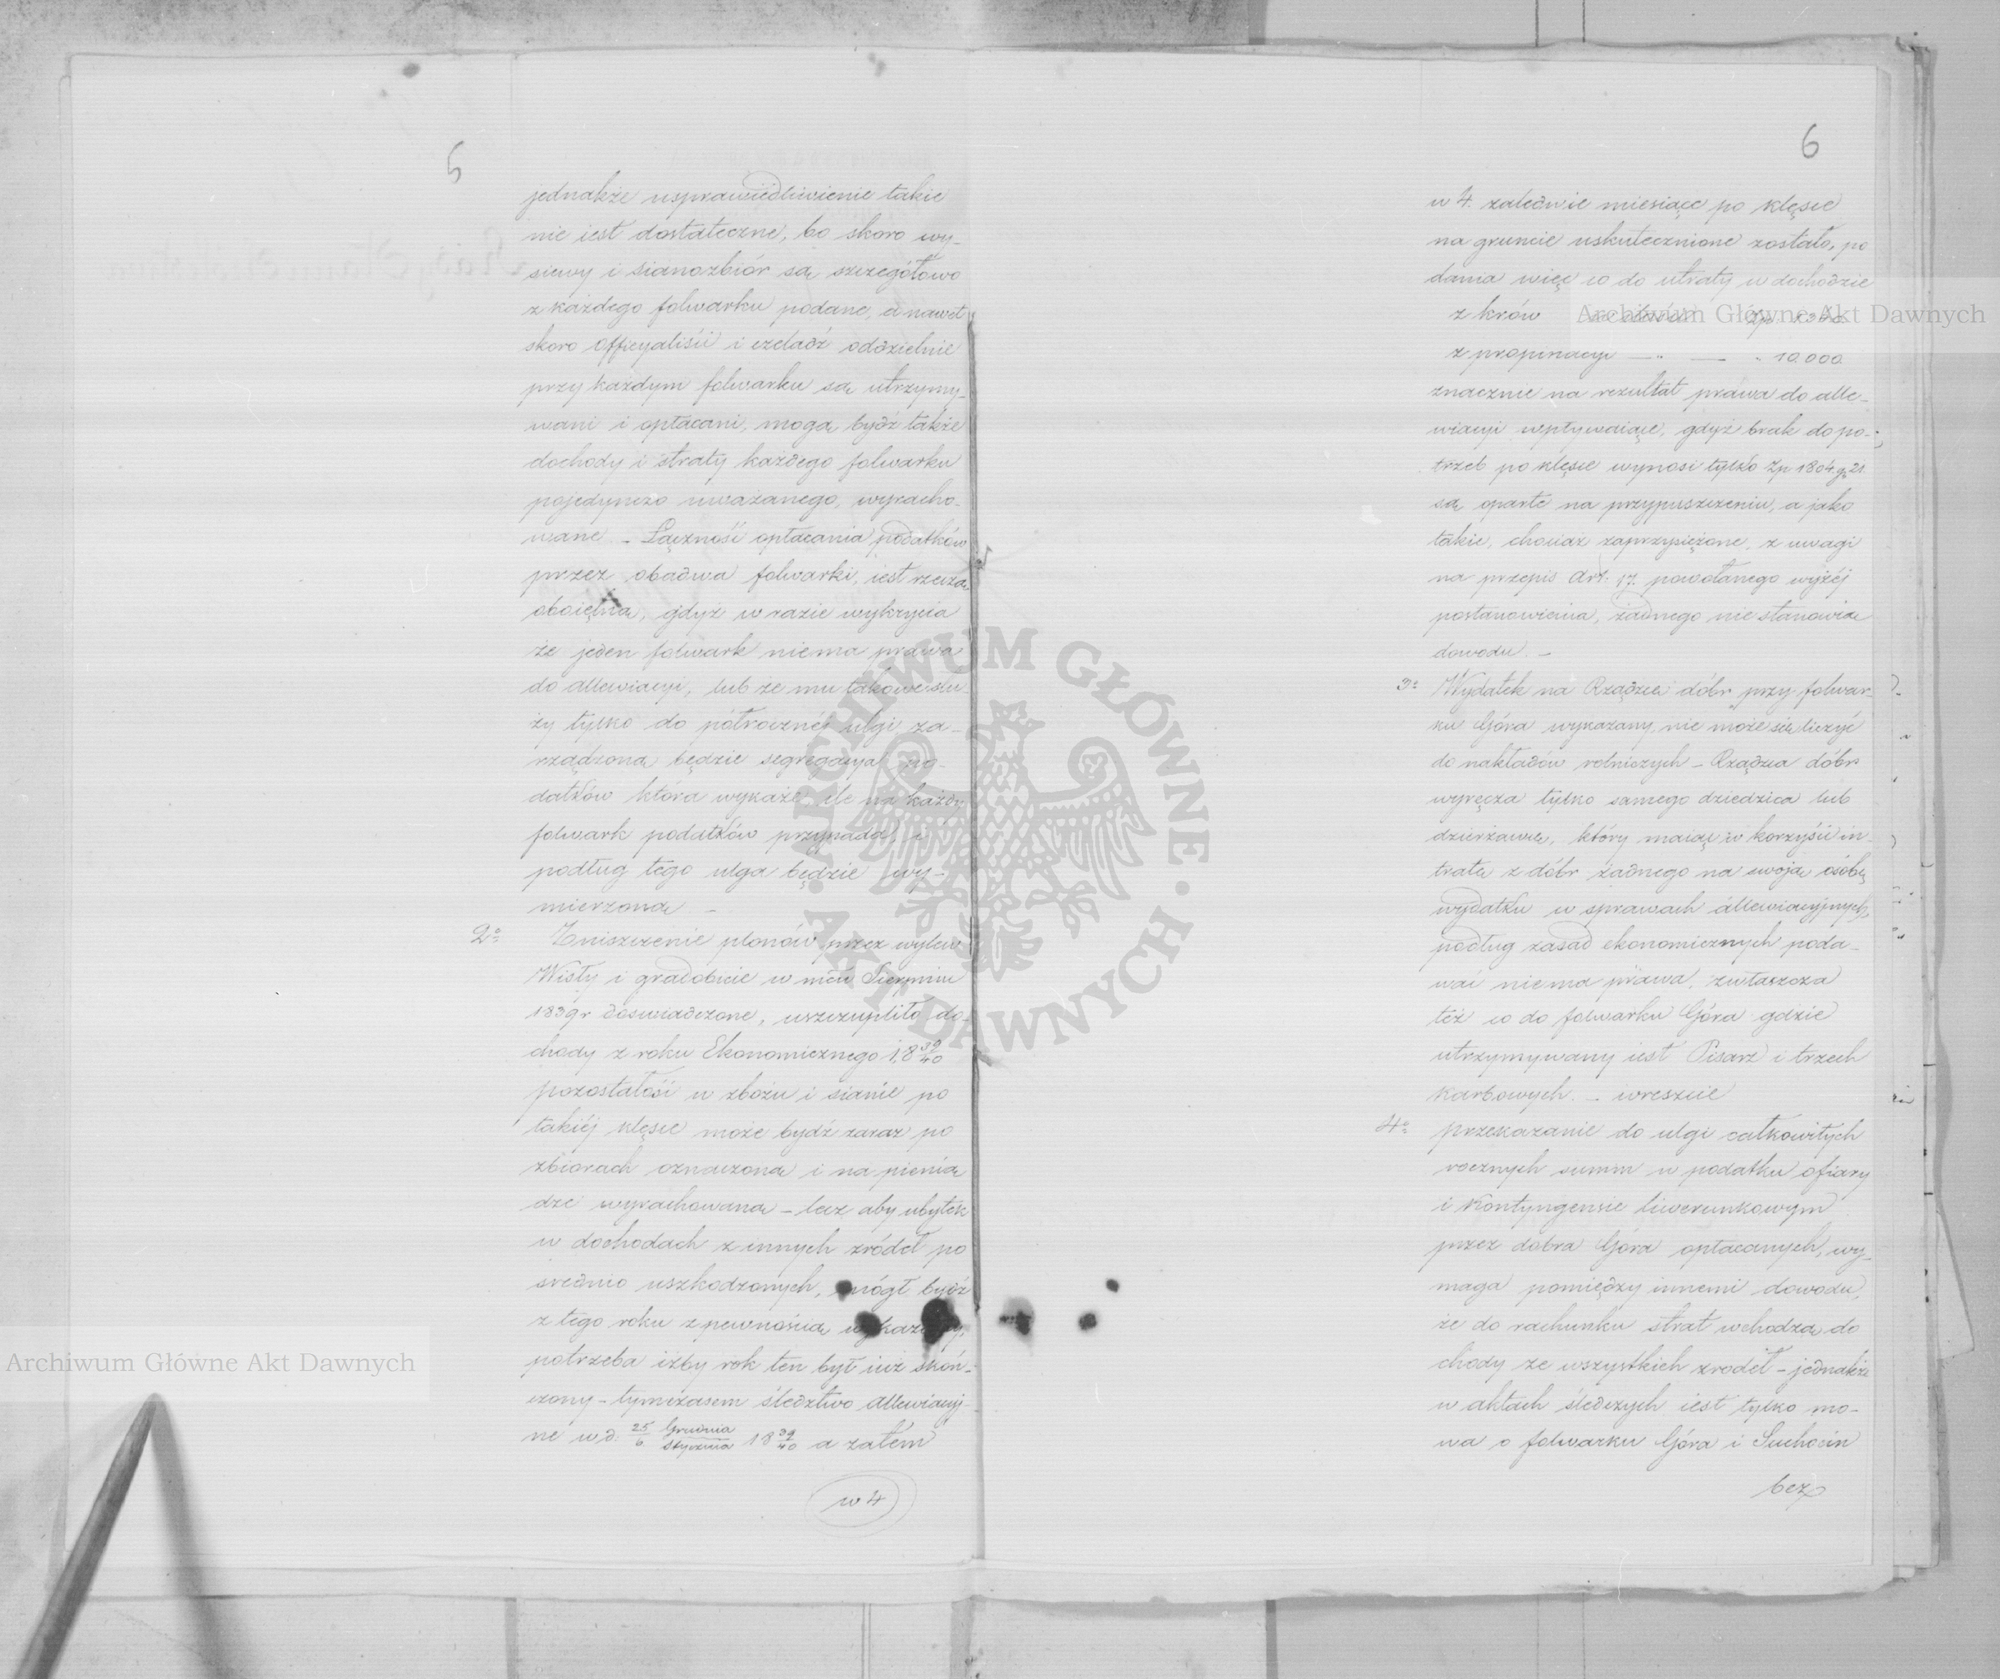 5
jednakże usprawiedliwienie takie
nie iest dostateczne, bo skoro wy-
siewy i sianozbiór są szczegółowo
z każdego folwarku podane, a nawet
skoro officyaliści i czeladź oddzielnie
przy każdym folwarku są utrzymy-
wani i opłacani, mogą bydź także
dochody i straty każdego folwarku
pojedynczo uważanego, wyracho-
wane. – Łączność opłacania podatków
przez obadwa folwarki, iest rzeczą
oboiętną, gdyż w razie wykrycia
że jeden folwark niema prawa
do allewiacyi, lub że mu takowe słu-
ży tylko do półrocznéj ulgi za-
rządzona będzie segregacya po-
datków która wykaże ile na każdy
folwark podatków przypada, i
podług tego ulga będzie wy-
mierzona –
2o Zniszczenie plonów przez wylew
Wisły i gradobicie w mcu Sierpniu
1839 r doświadczone, uszczupliło do-
chody z roku Ekonomicznego 18 39/40
pozostałość w zbożu i sianie po
takiéj klęsce może bydź zaraz po
zbiorach oznaczona i na pienią
dze wyrachowana – lecz aby ubytek
w dochodach z innych źródeł po
średnio uszkodzonych, mógł bydź
z tego roku z pewnością wykazany,
potrzeba iżby rok ten był iuż skoń-
czony – tymczasem śledztwo allewiacyj-
ne w d. 25/6 Grudnia/Stycznia 18 39/40 a zatém
w 4
6
w 4. zaledwie miesiące po klęsce
na gruncie uskutecznione zostało, po
dania więc co do utraty w dochodzie
z krów
z propinacyi — " — " 10.000
znacznie na rezultat prawa do alle-
wiacyi wpływaiące, gdyż brak do po-
trzeb po klęsce wynosi tylko Zp 1804 g. 21.
są oparte na przypuszczeniu, a jako
takie, chociaż zaprzysiężone, z uwagi
na przepis Art. 17. powołanego wyżéj
postanowienia, żadnego nie stanowią
dowodu. –
3o Wydatek na Rządzcę dóbr przy folwar-
ku Góra wykazany nie może się liczyć
do nakładów rolniczych – Rządzca dóbr
wyręcza tylko samego dziedzica lub
dzierżawcę, który maiąc w korzyści in-
tratę z dóbr żadnego na swoją osobę
wydatku w sprawach allewiacyjnych,
podług zasad ekonomicznych poda-
wać niema prawa, zwłaszcza
też co do folwarku Góra gdzie
utrzymywany iest Pisarz i trzech
karbowych. – wreszcie
4o przekazanie do ulgi całkowitych
rocznych summ w podatku ofiary
i Kontyngensie liwerunkowym
przez dobra Góra opłacanych, wy-
maga pomiędzy innemi dowodu,
że do rachunku strat wchodzą do
chody ze wszystkich zrodeł – jednakże
w aktach śledczych iest tylko mo-
wa o folwarku Góra i Suchocin
bez
Archiwum Główne Akt Dawnych
Archiwum Główne Akt Dawnych
ARCHIWUM GŁÓWNE · AKT DAWNYCH ·